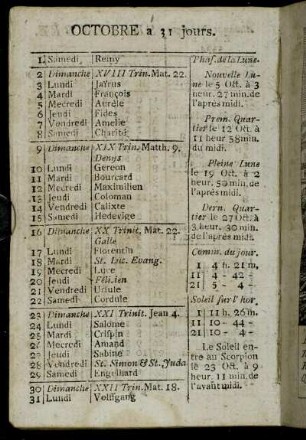 OCTOBRE a 31 jours.
1 Samedi Remy
2 Dimanche XVIII Trin. Mat. 22.
3 Lundi Jaïrus
4 Mardi François
5 Mecredi Aurèle
6 Jeudi Fides
7 Vendredi Amelie
8 Samedi Charité
9 Dimanche XIX Trin. Matth. 9.
Denys
10 Lundi Gereon
11 Mardi Bourcard
12 Mecredi Maximilien
13 Jeudi Coloman
14 Vendredi Calixte
15 Samedi Hedevige
16 Dimanche XX Trinit. Mat. 22.
Galle
17 Lundi Florentin
18 Mardi St. Luc. Evang.
19 Mecredi
20 Jeudi
21 Vendredi Ursule
22 Samedi Cordule
23 Dimanche XXI Trinit. Jean 4.
24 Lundi Salome
25 Mardi Crispin
26 Mecredi Amand
27 Jeudi Sabine
28 Vendredi St. Simon & St. Juda
29 Samedi Engelhard
30 Dimanche XXII Trin. Mat. 18.
31 Lundi Wolfgang
Phas. de la Lune.
Nouvelle Lu-
ne le 5 Oct. à 3
heur. 27 min. de
l'aprés midi.
Prem. Quar-
tier le 12 Oct. à
11 heur 58 min.
du midi.
Pleine Lune
le 19 Oct. à 2
heur. 50 min. de
l'aprés midi.
Dern. Quar-
tier le 27 Oct. à
3 heur. 30 min.
de l'aprés midi.
Comm. du jour.
1 4 h. 21 m.
11 4 - 42 -
21 5 - 4 -
Soleil sur l'hor.
1 11 h. 26 m.
11 10 - 44 -
21 10 - 4 -
Le Soleil en-
tre au Scorpion
le 23 Oct. à 9
heur. 11 min. de
l'avant midi.